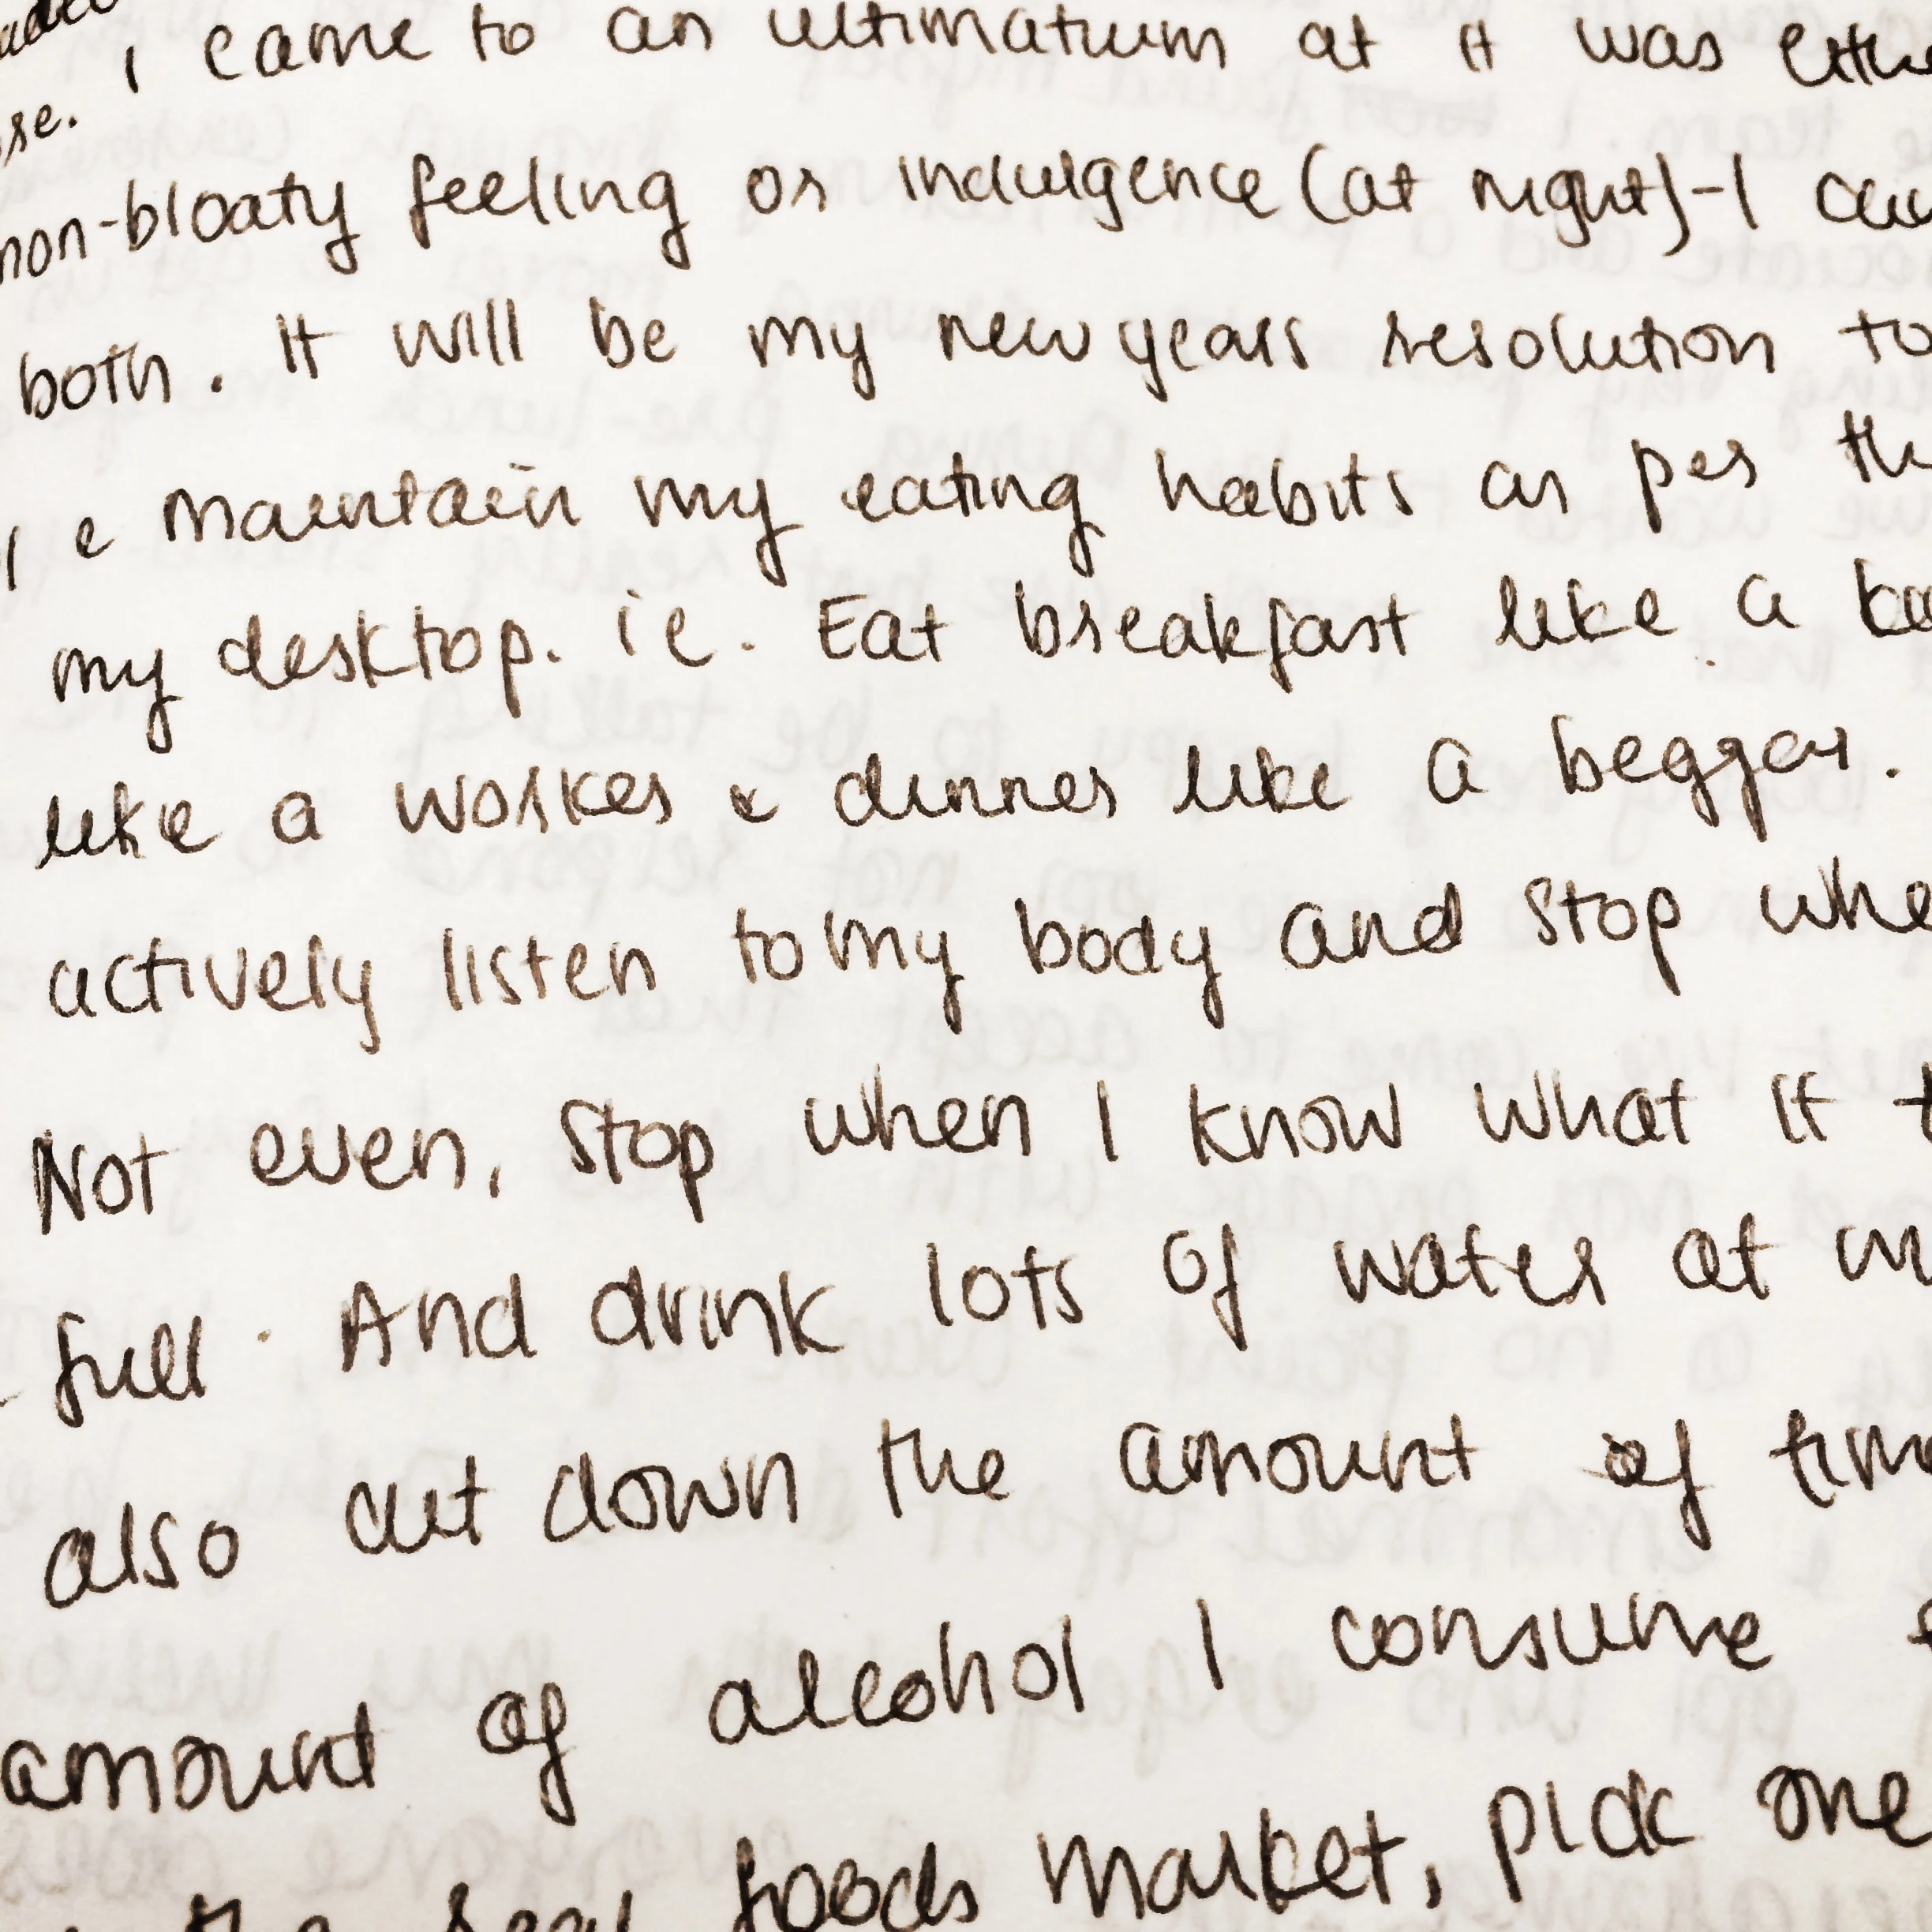 se. I came to an ultimatum at it was
non-bloaty feeling or indulgence (at night) - I
both. It will be my new years resolution to
I e maintain my eating habits as per
my desktop. ie. Eat breakfast like a
like a worker & dinner like a beggar.
actively listen to my body and stop
Not even, stop when I know what it
full. And drink lots of water at
also cut down the amount of
amount of alcohol I consume
the real foods market, pick one